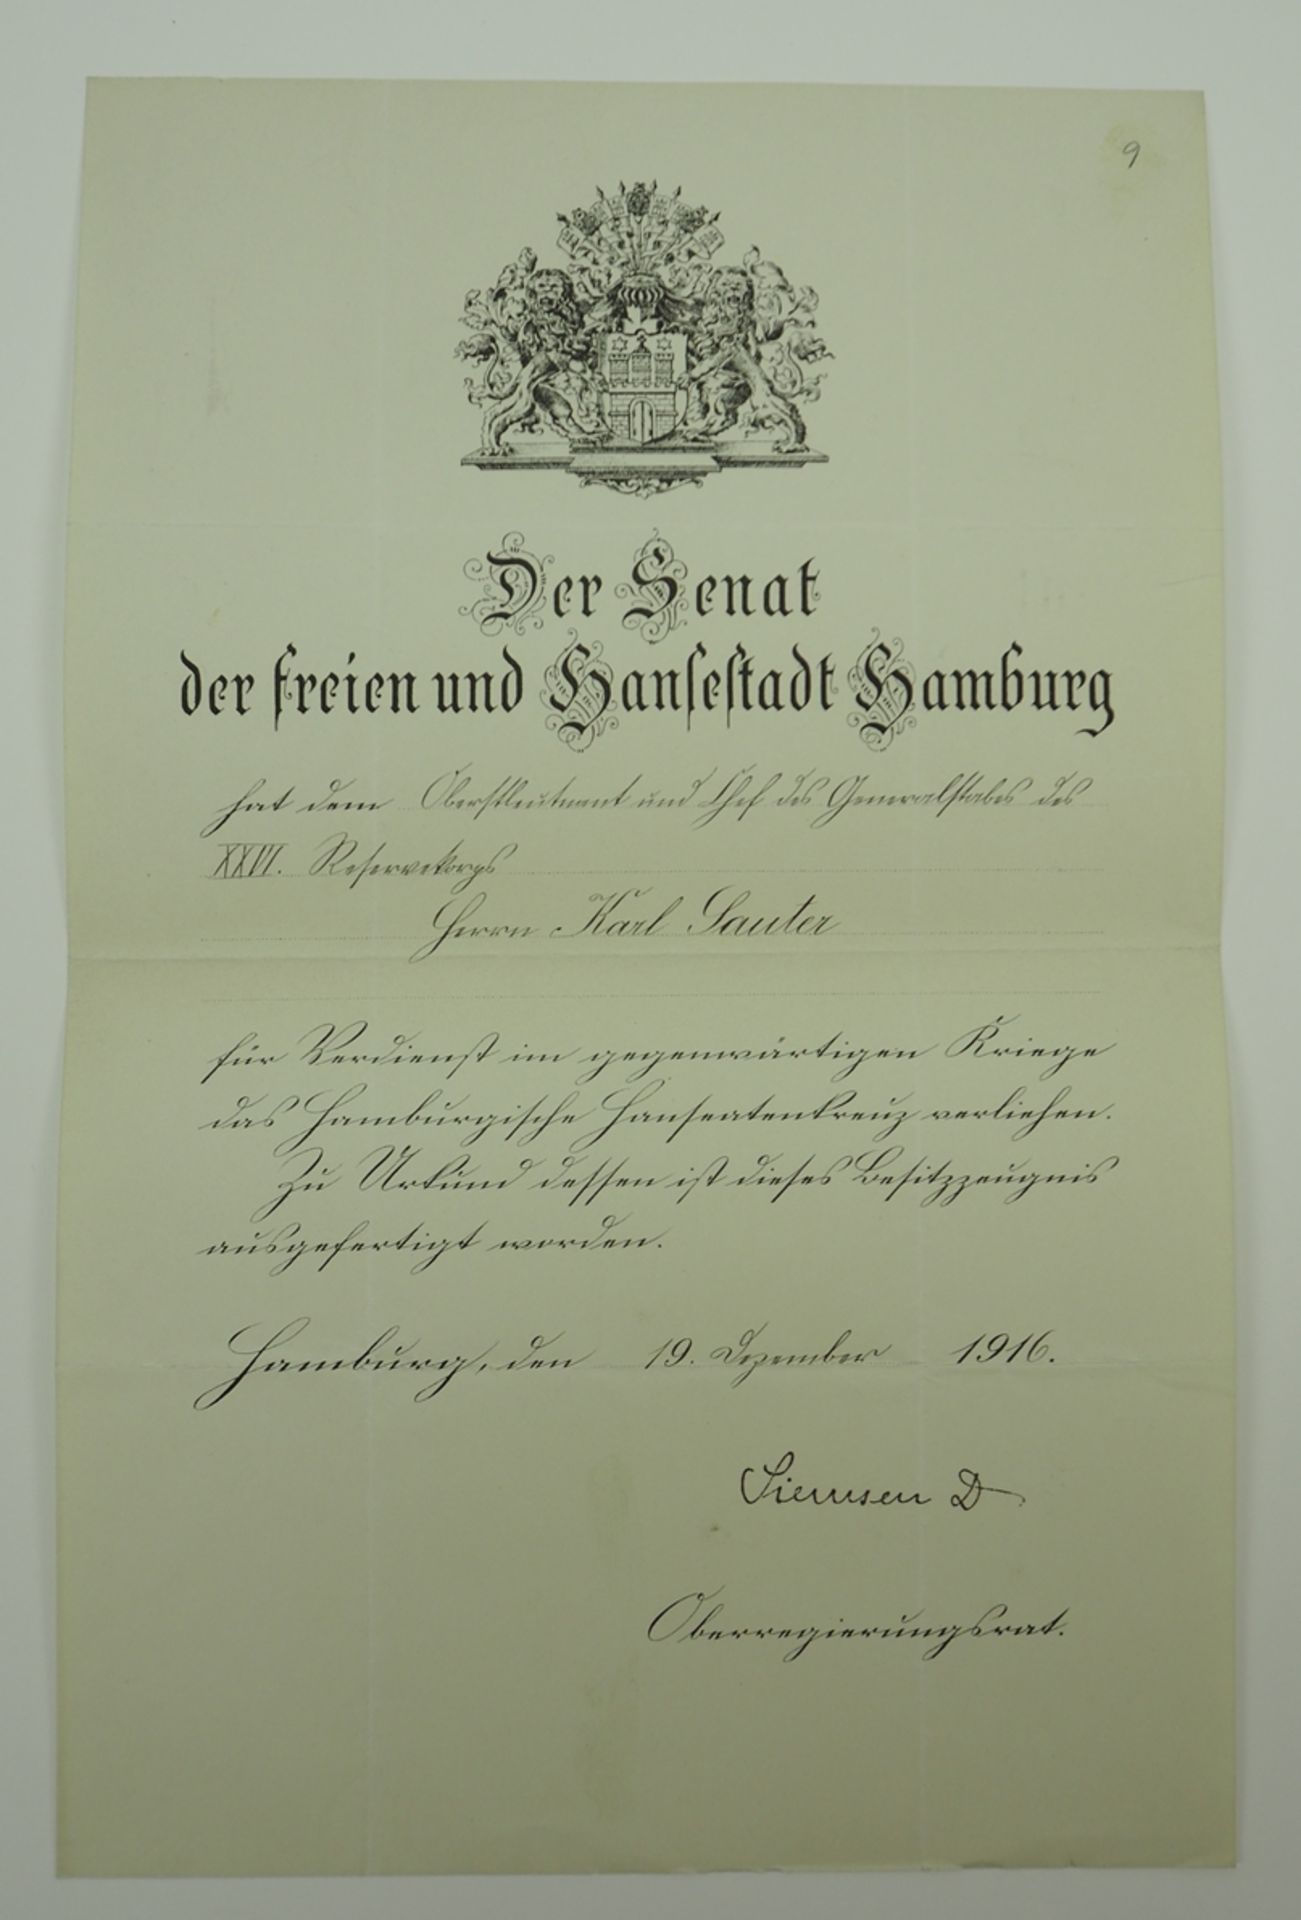 9
Der Senat
der freien und Hansestadt Hamburg
hat dem Oberstleutnant und Chef des Generalstabes des
XXVI. Reservekorps
Herrn Karl Sauter
für Verdienst im gegenwärtigen Kriege
das Hamburgische Hanseatenkreuz verliehen.
Zu Urkund dessen ist dieses Besitzzeugnis
ausgefertigt worden.
Hamburg, den 19. Dezember 1916.
Siemsen D
Oberregierungsrat.